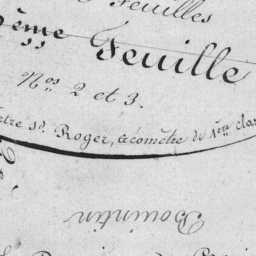 Feuilles
ème Feuille
Nos 2 et 3.
Sr. Roger, Géomètre de 1ère clas
Bouintin